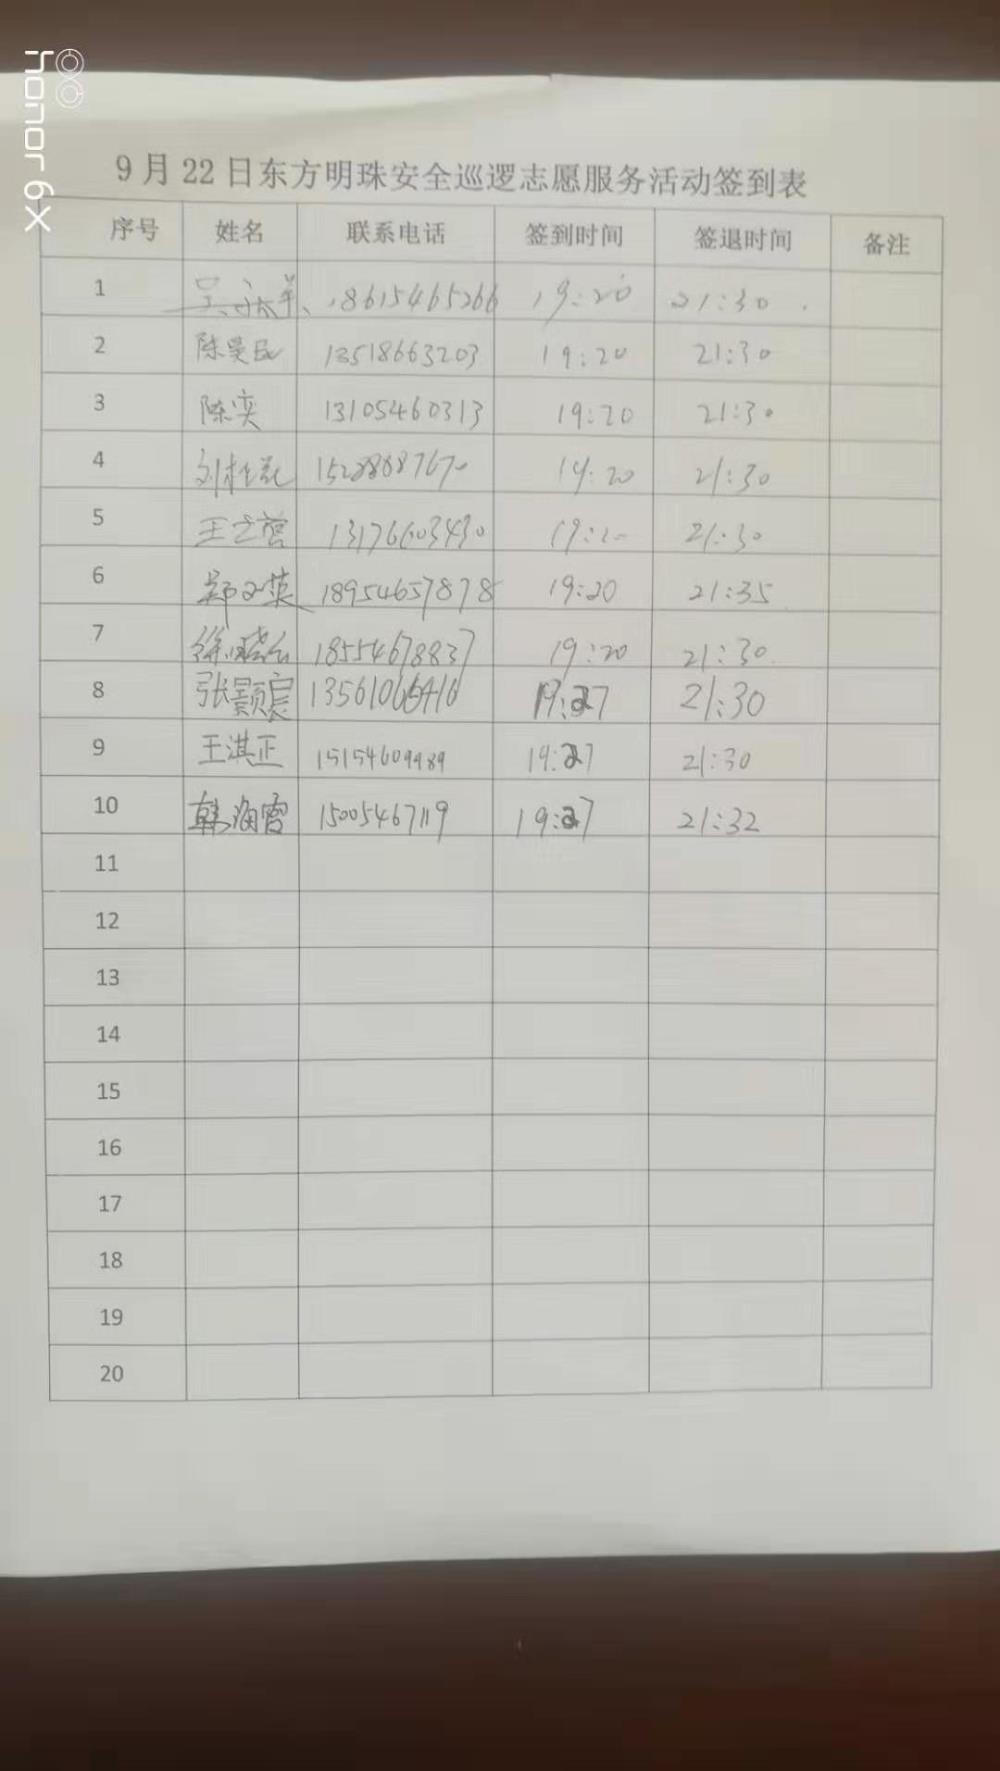 honor 6X
9月22日东方明珠安全巡逻志愿服务活动签到表
序号 姓名 联系电话 签到时间 签退时间 备注
1 18615465266 19:20 21:30
2 陈曼民 13518663203 19:20 21:30
3 陈奕 13105460313 19:20 21:30
4 21:30
5 13176603430 21:30
6 郑文英 18954657878 19:20 21:35
7 徐晓云 18554678837 19:20 21:30
8 张颢宸 19:27 21:30
9 王淇正 15154609989 19:27 21:30
10 韩海霞 15005467119 19:27 21:32
11
12
13
14
15
16
17
18
19
20